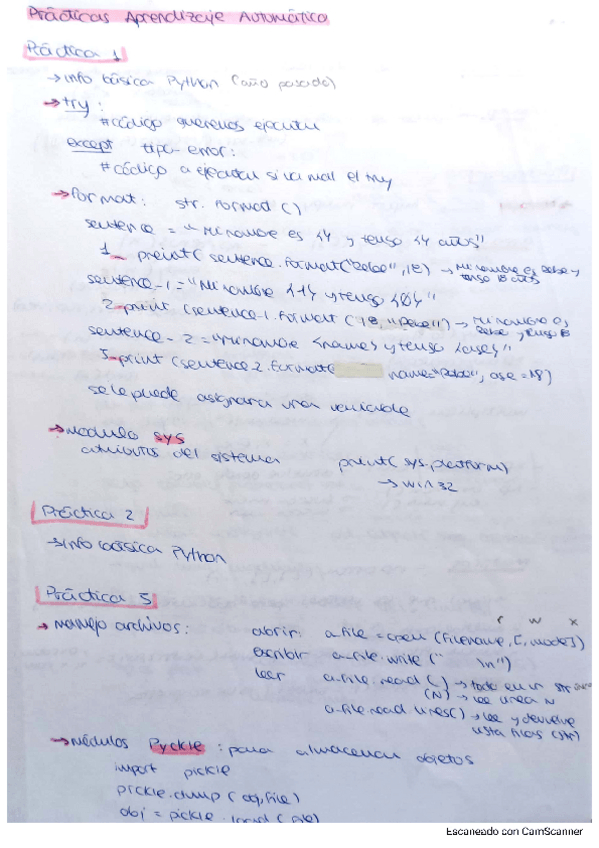 Prácticas Aprendizaje Automático
Práctica 1
→ info básica Python (año pasado)
→ try:
#código queremos ejecutar
except tipo-error:
#código a ejecutar si va mal el try
→ Format: str.format()
sentence = "Mi nombre es {} y tengo {} años"
1 print(sentence.format("Pepe", 18) → Mi nombre es Pepe y tengo 18 años
sentence-1 = "Mi nombre {1} y tengo {0}"
2 print (sentence-1.format (18, "Pepe") → Mi nombre es Pepe y tengo 18
sentence-2 = "Mi nombre {name} y tengo {age}"
3 print (sentence2.format( name="Pepe", age=18)
se le puede asignar a una variable
→ módulo sys
atributos del sistema print(sys.platform)
→ win32
Práctica 2
→ info básica Python
Práctica 3
r w x
→ manejo archivos: abrir a-file = open (filename, [, mode])
escribir a-file.write(" \n")
leer a-file.read() → todo en un str
(N) → lee línea N
a-file.readlines() → lee y devuelve
lista filas (str)
→ módulos Pyckle: para almacenar objetos
import pickle
pickle.dump (obj, file)
obj = pickle.load (file)
Escaneado con CamScanner